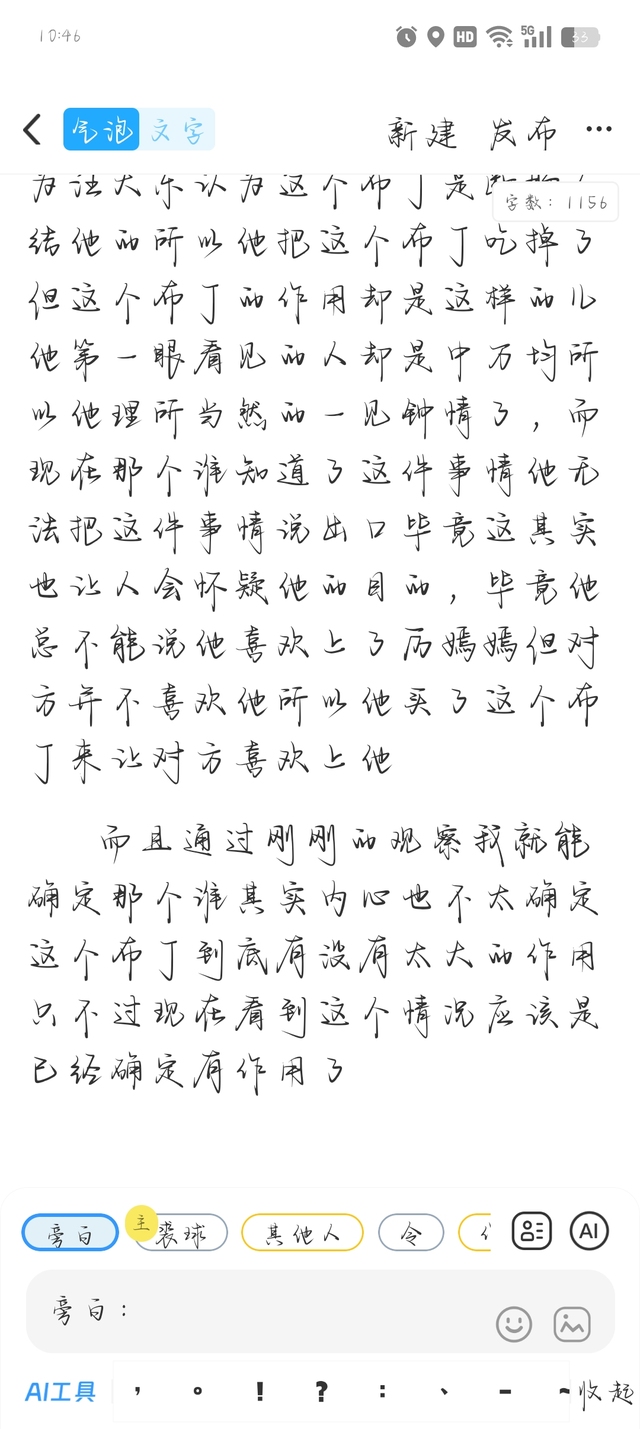 10:46
HD 5G 33
气泡 文字 新建 发布 ...
字数：1156
为汪大东认为这个布丁是
结他的所以他把这个布丁吃掉了
但这个布丁的作用却是这样的儿
他第一眼看见的人却是中万均所
以他理所当然的一见钟情了，而
现在那个谁知道了这件事情他无
法把这件事情说出口毕竟这其实
也让人会怀疑他的目的，毕竟他
总不能说他喜欢上了厉嫣嫣但对
方并不喜欢他所以他买了这个布
丁来让对方喜欢上他
而且通过刚刚的观察我就能
确定那个谁其实内心也不太确定
这个布丁到底有没有太大的作用
只不过现在看到这个情况应该是
已经确定有作用了
旁白 主 裘球 其他人 令 AI
旁白：
AI工具 ， 。 ！ ？ ： 、 - ~ 收起